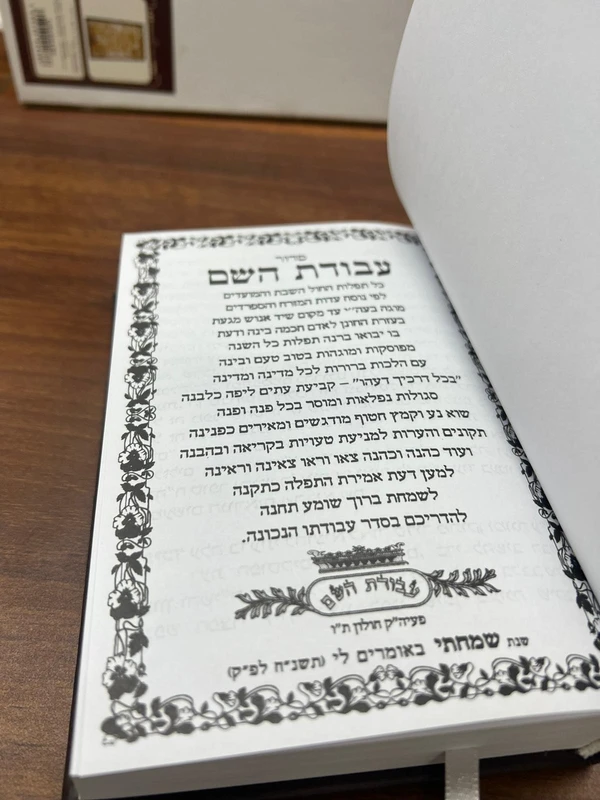 סדור
עבודת השם
כל תפלות החול השבת והמועדים
לפי נוסח עדות המזרח והספרדים
מוגה בעה״י עד מקום שיד אנוש מגעת
בעזרת החונן לאדם חכמה בינה ודעת
בו יבואו ברנה תפלות כל השנה
מפוסקות ומוגהות בטוב טעם ובינה
עם הלכות ברורות לכל מדינה ומדינה
״בכל דרכיך דעהו״ – קביעת עתים ליפה כלבנה
סגולות נפלאות ומוסר בכל פנה ופנה
שוא נע וקמץ חטוף מודגשים ומאירים כפנינה
תקונים והערות למניעת טעויות בקריאה ובהבנה
ועוד כהנה וכהנה צאו וראו צאינה וראינה
למען דעת אמירת התפלה כתקנה
לשמחת ברוך שומע תחנה
להדריכם בסדר עבודתו הנכונה.
עבודת השם
פעיה״ק חולון ת״ו
שנת שמחתי באומרים לי (תשנ״ח לפ״ק)